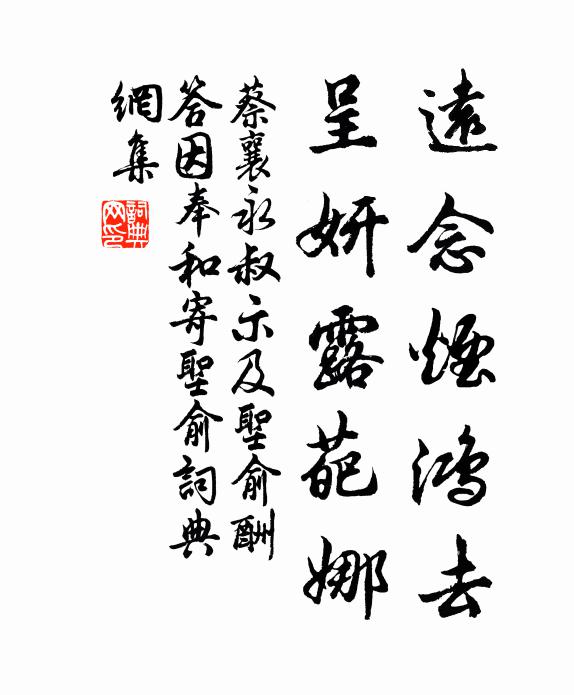 遠念煙鴻去
呈妍露葩娜
蔡襄永叔示及聖俞酬
答因奉和寄聖俞詞典
網集
詞典
网印